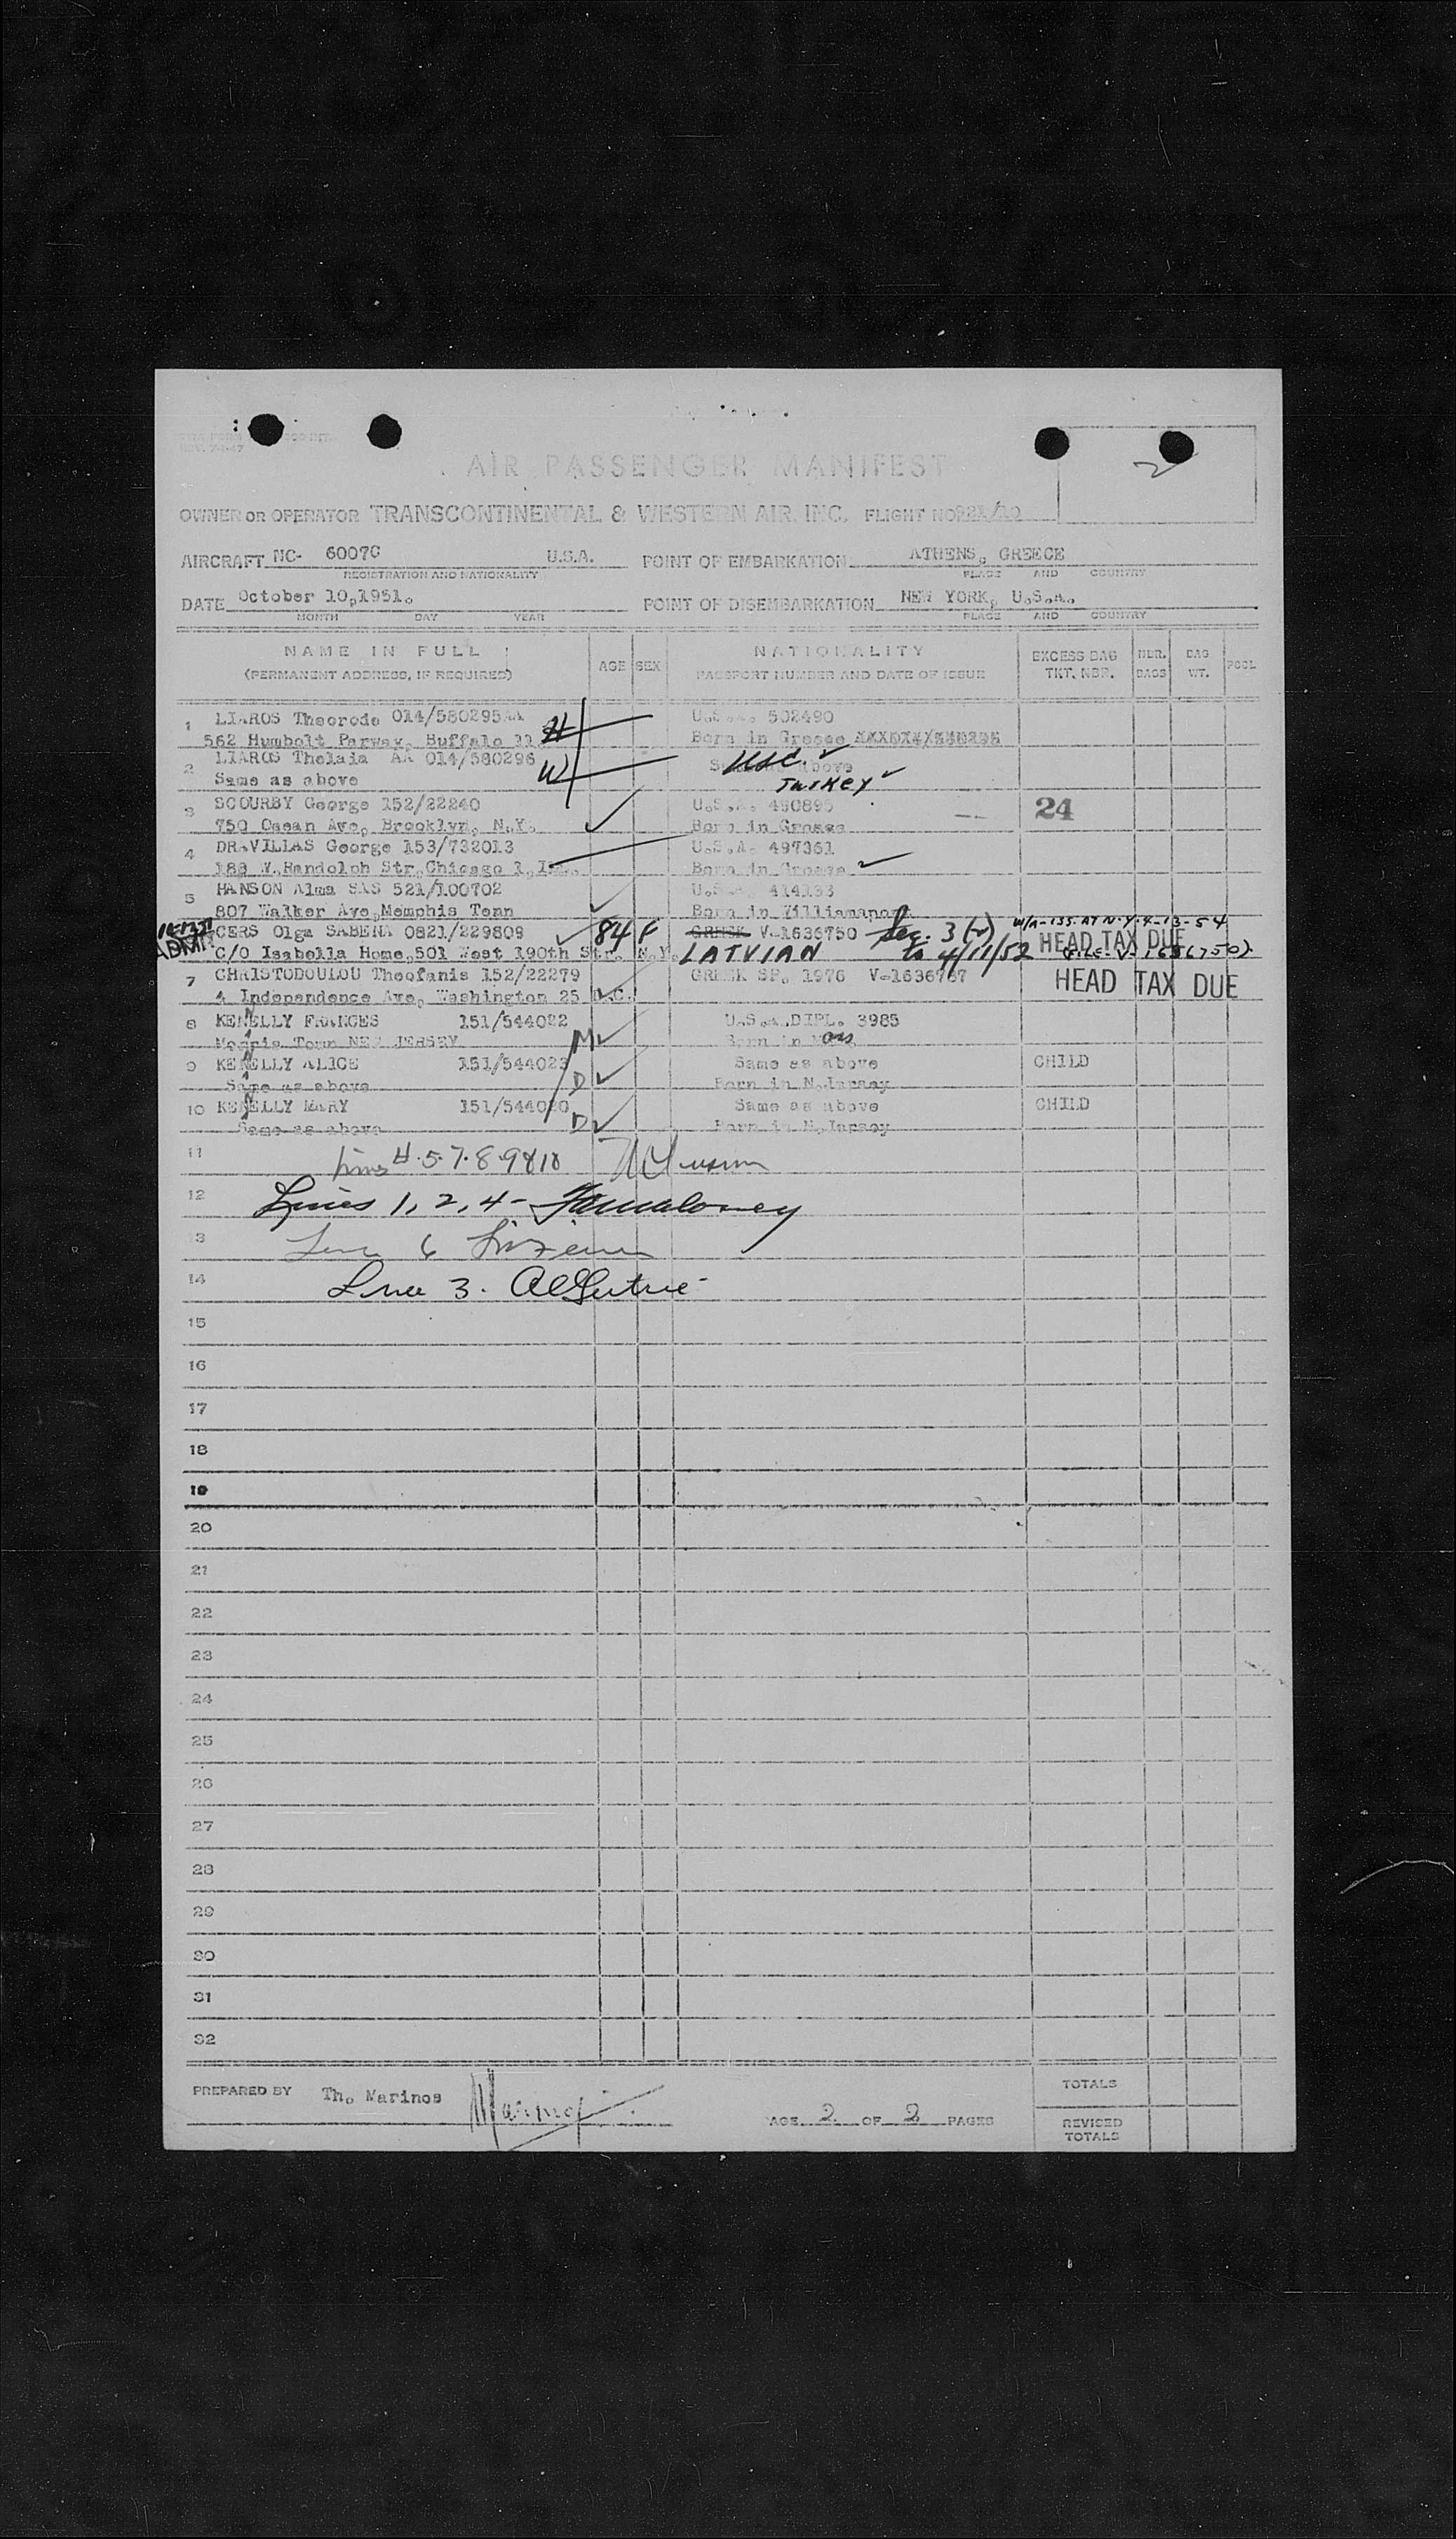 AIR PASSENGER MANIFEST
2
OWNER OR OPERATOR TRANSCONTINENTAL & WESTERN AIR, INC. FLIGHT NO 921/10
AIRCRAFT NC- 6007C U.S.A. POINT OF EMBARKATION ATHENS, GREECE
REGISTRATION AND NATIONALITY PLACE AND COUNTRY
DATE October 10,1951. POINT OF DISEMBARKATION NEW YORK, U.S.A.
MONTH DAY YEAR PLACE AND COUNTRY
NAME IN FULL AGE SEX NATIONALITY EXCESS BAG NBR. BAG POOL
(PERMANENT ADDRESS, IF REQUIRED) PASSPORT NUMBER AND DATE OF ISSUE TKT. NBR. BAGS WT.
1 LIAROS Theorode 014/580295AA H U.S.A. 502490
562 Humbolt Parway, Buffalo 11 Born in Greece
2 LIAROS Thelaia AA 014/580296 W Same as above USC.
Same as above Turkey
3 SCOURBY George 152/22240 U.S.A. 490895 24
750 Ocean Ave, Brooklyn, N.Y. Born in Greece
4 DR.VILLAS George 153/732013 U.S.A. 497361
188 W.Randolph Str.Chicago 1, Ill. Born in Greece
5 HANSON Alma SAS 521/100702 U.S.A. 414133
807 Walker Ave,Memphis Tenn Born in Williamsport
ADMIT CERS Olga SABENA 0821/229809 84 F GREEK V-1636750 Sec. 3(2) W/A-133. AT N.Y. 4-13-54
C/O Isabella Home,501 West 190th Str. N.Y. LATVIAN to 4/11/52 HEAD TAX DUE (FILE V-1636750)
7 CHRISTODOULOU Theofanis 152/22279 GREEK SP. 1976 V-1636767 HEAD TAX DUE
4 Independence Ave, Washington 25 D.C.
8 KENNELLY FRANCES 151/544022 U.S.A.DIPL. 3985
Morris Town NEW JERSEY M Born in Mass
9 KENNELLY ALICE 151/544023 Same as above CHILD
Same as above D Born in N.Jersey
10 KENNELLY MARY 151/544020 Same as above CHILD
Same as above D Born in N.Jersey
11 5.7.8.9&10
12 Lines 1, 2, 4 - Maloney
13 Line 6
14 Line 3.
15
16
17
18
19
20
21
22
23
24
25
26
27
28
29
30
31
32
PREPARED BY Th. Marinos Marinos TOTALS
PAGE 2 OF 2 PAGES REVISED
TOTALS